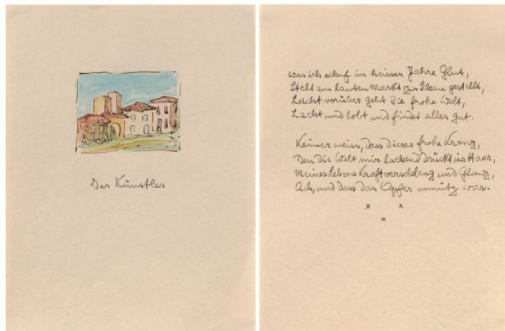 Der Künstler
Was ich schuf in heisser Jahre Glut,
Steht am lauten Markt zur Schau gestellt,
Leicht vorüber geht die frohe Welt,
Lacht und lobt und findet alles gut.
Keiner weiss, dass dieser frohe Kranz,
Den die Welt mir lachend drückt ins Haar,
Meines Lebens Kraft verschlang und Glanz,
Ach, und dass das Opfer unnütz war.